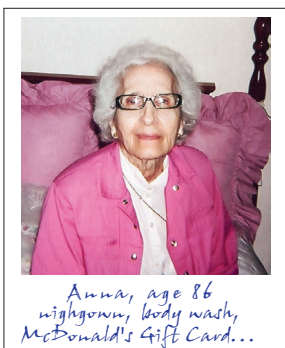 Anna, age 86
nighgown, body wash,
McDonald's Gift Card...